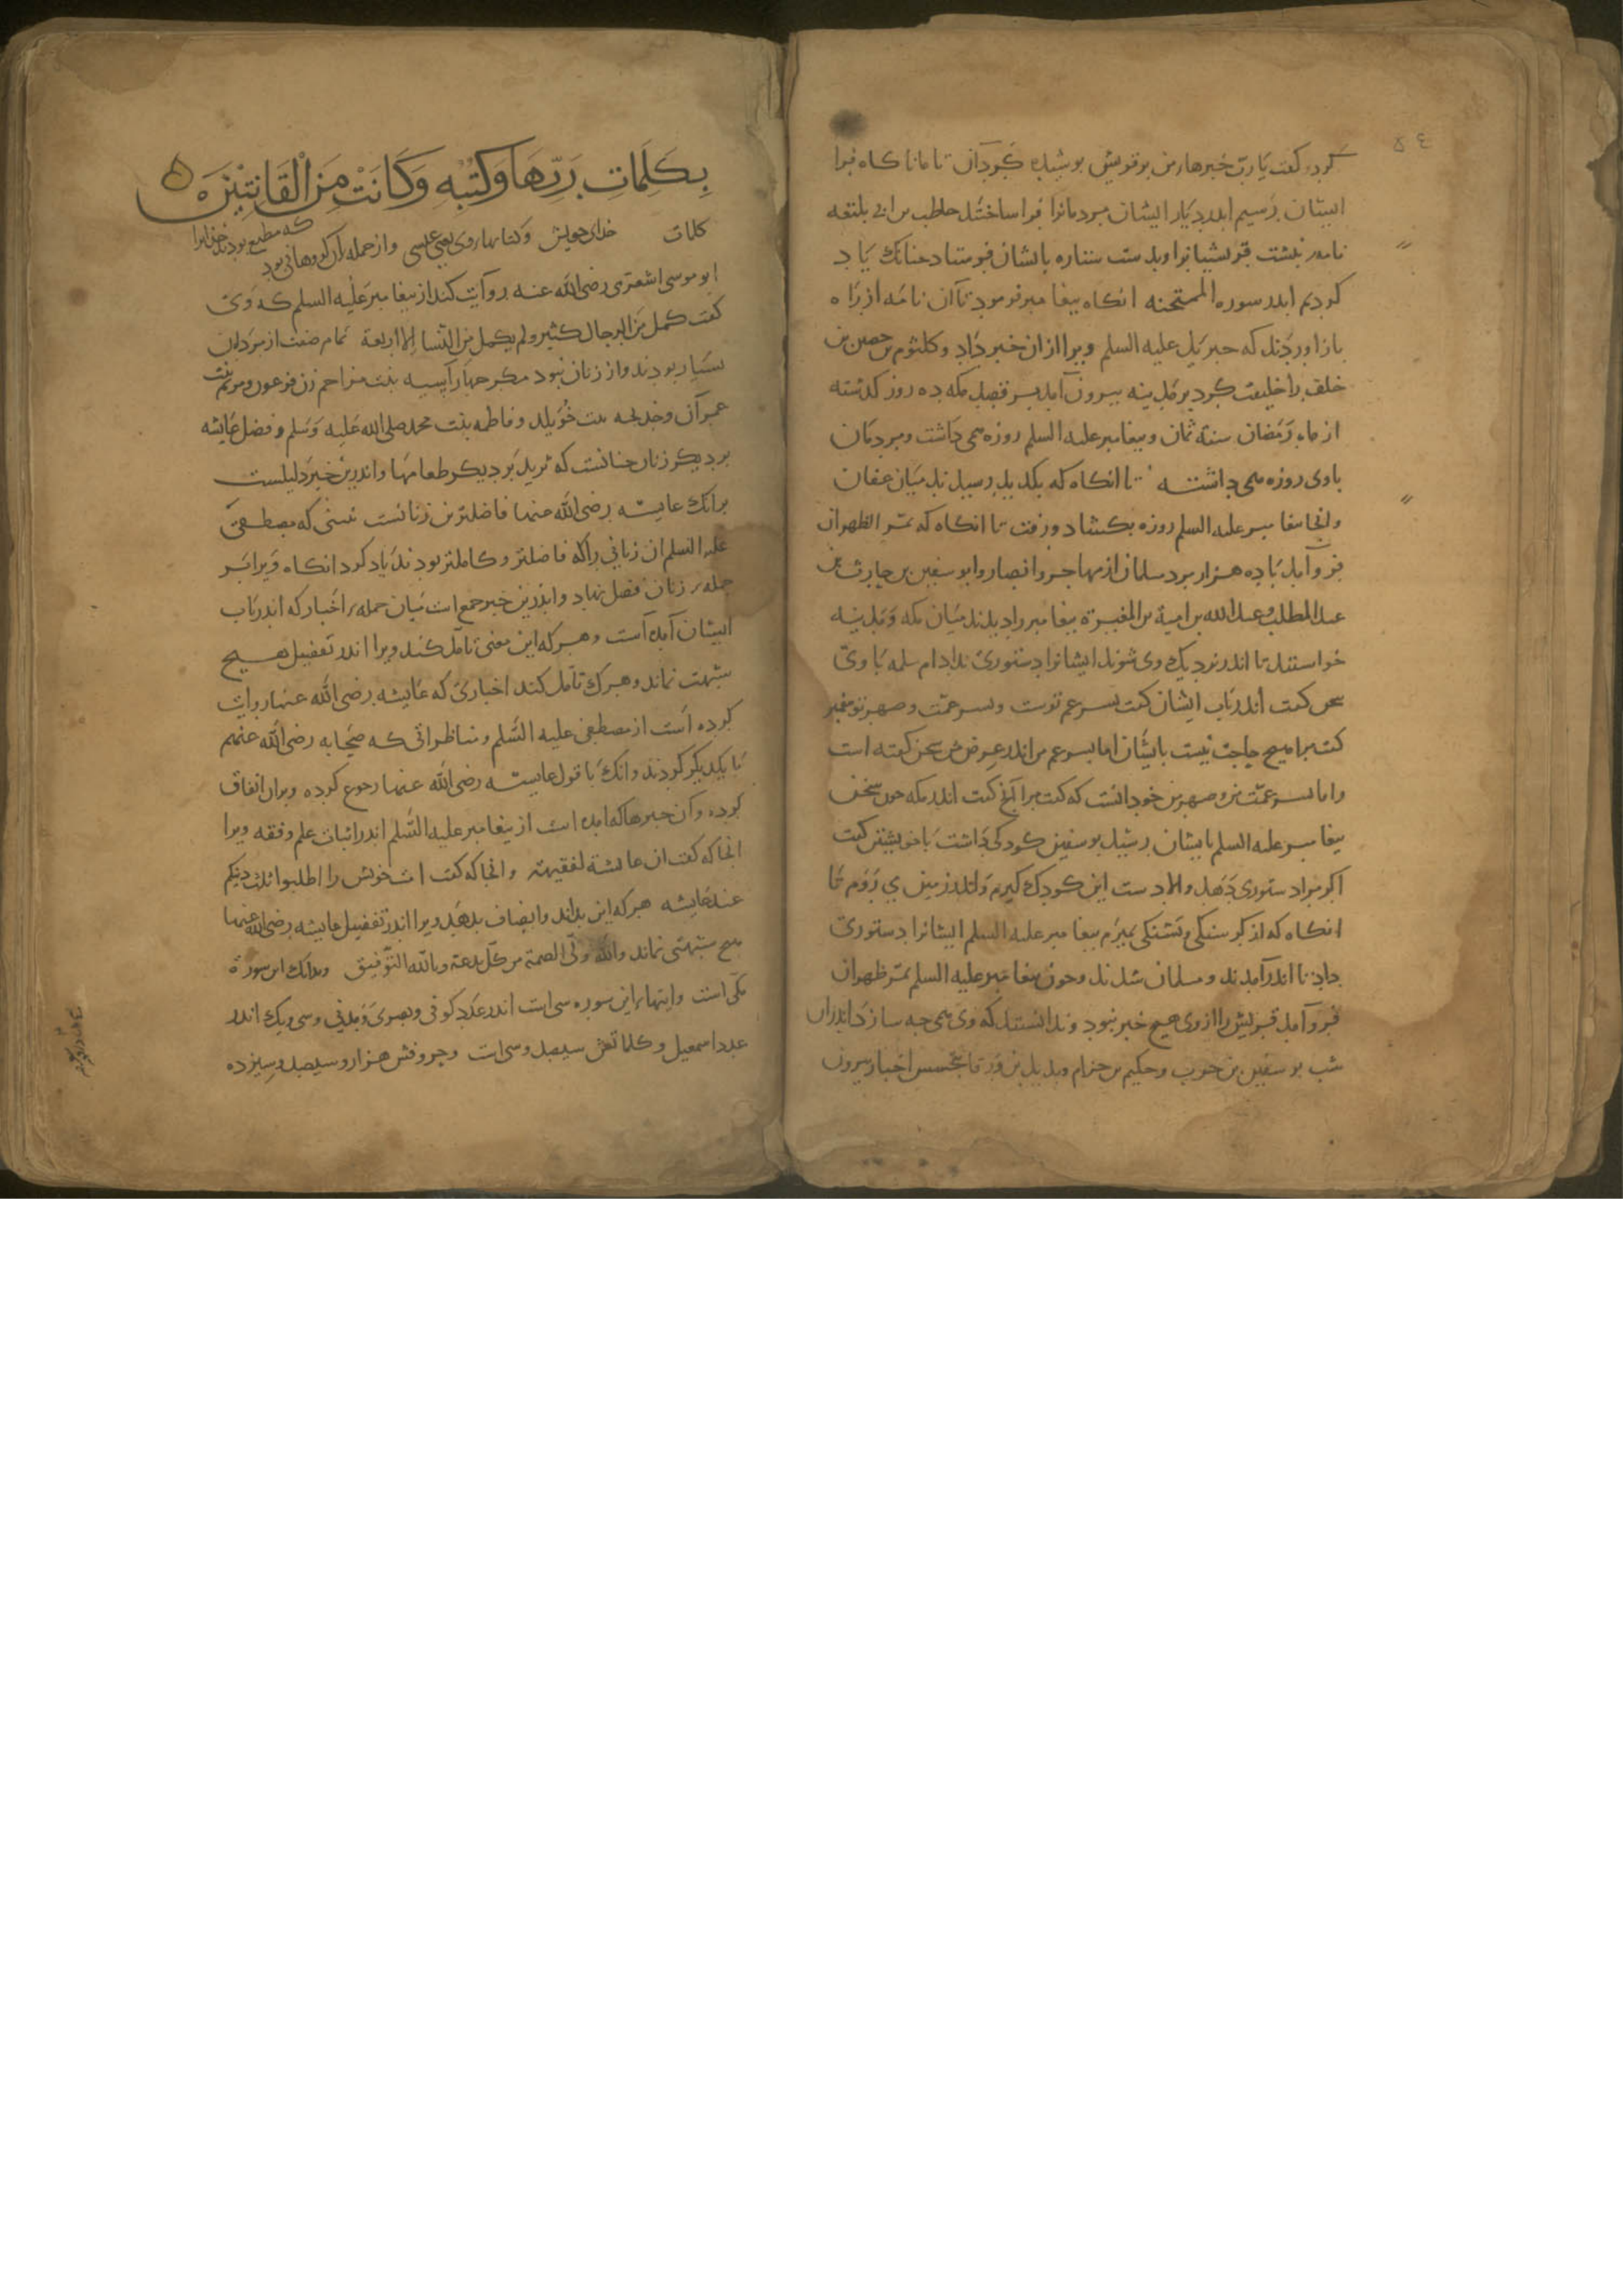 ٥٤
کرد و کفت یا رب خبرهاء من بر قریش بوشیده کردان تا ما ناکاه فرا
ایشان رسیم اندر دیار ایشان مردمانرا فرا ساختند حاطب بن ابی بلتعه
نامه نبشت قریشیانرا وبدست ساره بایشان فرستاد جنانک یاد
کردیم اندر سوره الممتحنه انکاه بیغامبر فرمود تا آن نامه از راه
بازاوردند که جبریل علیه السلم ویرا ازان خبر داد و کلثوم بن حصین بن
خلف را خلیفت کرد بر مدینه بیرون آمد بر قصد مکه ده روز کذشته
از ماه رمضان سنة ثمان و بیغامبر علیه السلم روزه می داشت ومردمان
باوی روزه می داشتند تا انکاه که بکدید رسیدند میان عفان
وانجا بیغامبر علیه السلم روزه بکشاد ورفت تا انکاه که بمر الظهران
فرو آمد با ده هزار مرد مسلمان از مهاجر وانصار وابو سفین بن حارث بن
عبد المطلب وعبد الله بن امیة بن المغیرة بیغامبر را دیدند میان مکه ومدینه
خواستند تا اندر نزدیک وی شوند ایشانرا دستوری نداد ام سلمه با وی
سخن کفت اندر باب ایشان کفت بسر عم توست وبسر عمت وصهر تو بیغمبر
کفت مرا هیج حاجت نیست بایشان اما بسر عم من اندر عرض من سخن کفته است
واما بسر عمت من وصهر من خود انست که کفت مرا آنج کفت اندر مکه جون سخن
بیغامبر علیه السلم بایشان رسید بو سفین کودکی داشت با خویشتن کفت
اکر مرا دستوری دهد والا دست این کودک کیرم واندر زمین می روم تا
انکاه که از کرسنکی وتشنکی بمیرم بیغامبر علیه السلم ایشانرا دستوری
داد تا اندر آمدند و مسلمان شدند وجون بیغامبر علیه السلم بمر ظهران
فرو آمد قریش را از وی هیج خبر نبود وندانستند که وی می جه سازد اندران
شب بو سفین بن حرب وحکیم بن حزام وبدیل بن ورقا بتجسس اخبار بیرون
بِكَلِمَاتِ رَبِّهَا وَكُتُبِهِ وَكَانَتْ مِنَ الْقَانِتِينَ
کلمات خدای خویش وکتابهاء وی یعنی عیسی واز جمله آن کروهانی بود که مطیع بودند خدایرا
ابو موسی اشعری رضی الله عنه روآیت کند از بیغامبر علیه السلم که وی
کفت کمل من الرجال کثیر ولم یکمل من النسا الا اربعة تمام صفت از مردان
بسیار بودند واز زنان نبود مکر جهار آسیه بنت مزاحم زن فرعون ومریم بنت
عمران وخدیجه بنت خویلد وفاطمه بنت محمد صلی الله علیه وسلم وفضل عایشه
بر دیکر زنان جنانست که ثرید بر دیکر طعامها واندرین خبر دلیلست
برانک عایشه رضی الله عنها فاضلترین زنانست نبینی که مصطفی
علیه السلم ان زنانی را که فاضلتر وکاملتر بودند یاد کرد انکاه ویرا بر
جمله زنان فضل نهاد واندرین خبر جمع است میان جمله اخبار که اندر باب
ایشان آمده است وهر که این معنی تامل کند ویرا اندر تفضیل هیج
شبهت نماند وهرک تامل کند اخباری که عایشه رضی الله عنها روایت
کرده است از مصطفی علیه السلم ومناظراتی که صحابه رضی الله عنهم
با یکدیکر کردند وانک با قول عایشه رضی الله عنها رجوع کرده وبران اتفاق
کرده وآن خبرها که امده است از بیغامبر علیه السلم اندر اثبات علم وفقه ویرا
انجا که کفت ان عایشة لفقیهة وانجا که کفت امت خویش را اطلبوا ثلث دینکم
عند عایشه هر که این بداند وانصاف بدهد ویرا اندر تفضیل عایشه رضی الله عنها
هیج شبهتی نماند والله ولی العصمة من کل بدعة وبالله التوفیق وبدانک این سورة
مکی است وآیتهاء این سوره سی است اندر عدد کوفی وبصری ومدنی وسی ویک اندر
عدد اسمعیل وکلماتش سیصد وسی است وحروفش هزار وسیصد وسیزده